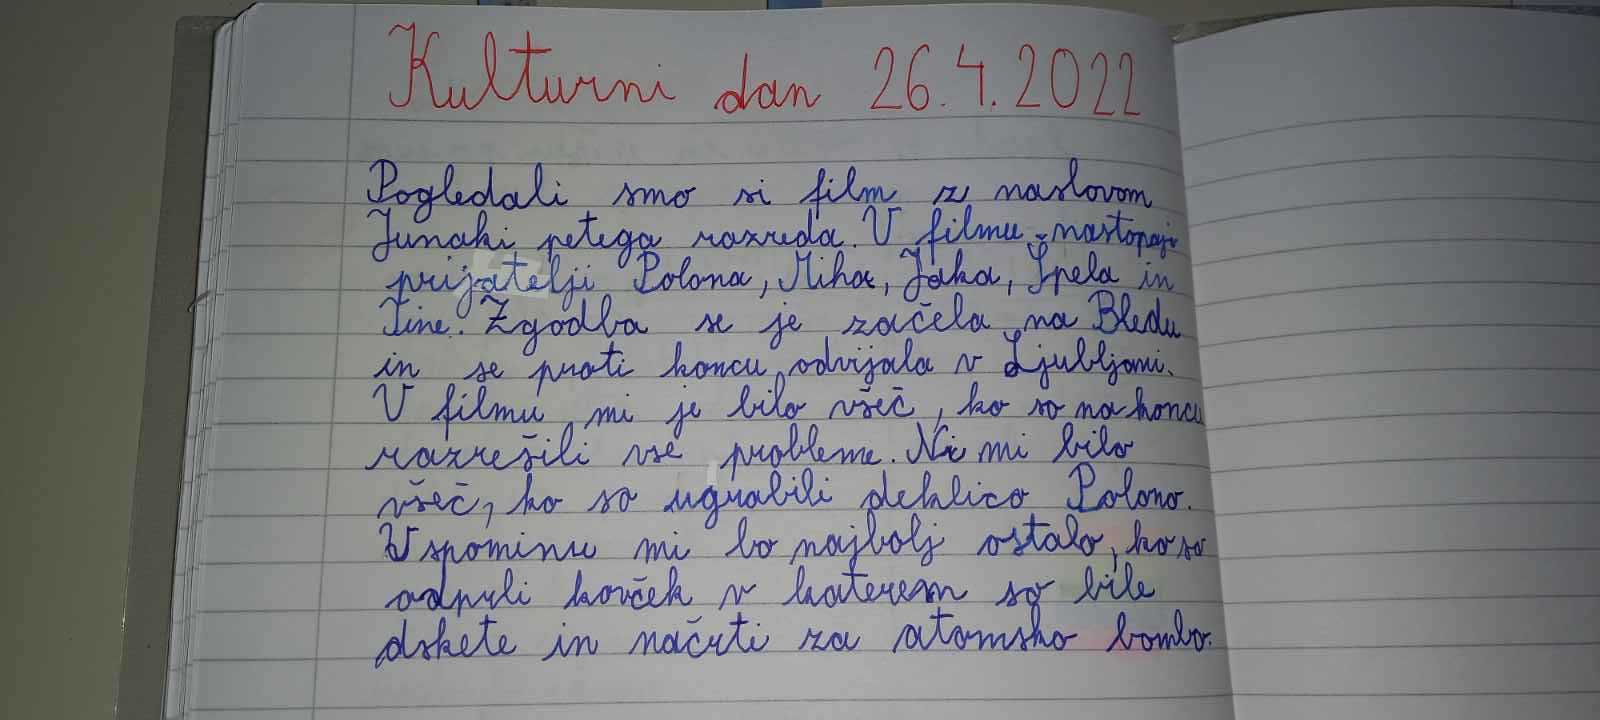 Kulturni dan 26.4.2022
Pogledali smo si film z naslovom
Junaki petega razreda. V filmu nastopajo
prijatelji Polona, Miha, Jaka, Špela in
Tine. Zgodba se je začela na Bledu
in se proti koncu odvijala v Ljubljani.
V filmu mi je bilo všeč, ko so na koncu
razrešili vse probleme. Ni mi bilo
všeč, ko so ugrabili deklico Polono.
V spominu mi bo najbolj ostalo, ko so
odprli kovček v katerem so bile
dskete in načrti za atomsko bombo.